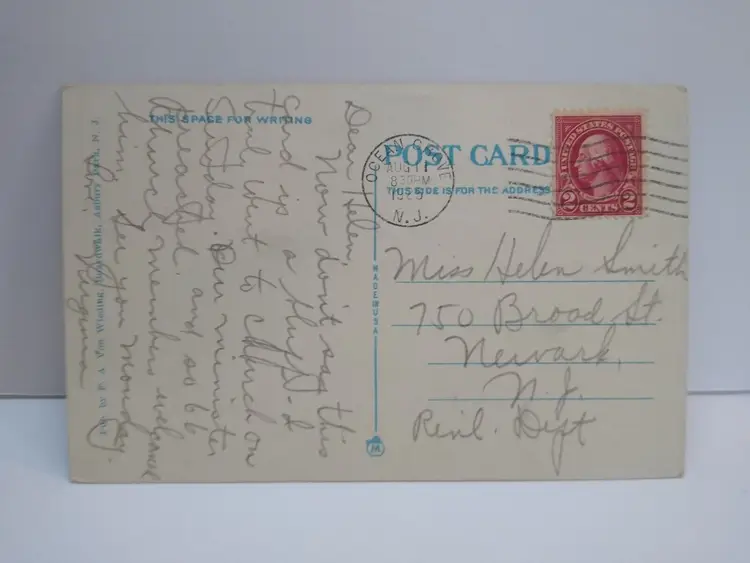 THIS SPACE FOR WRITING
POST CARD
THIS SIDE IS FOR THE ADDRESS
OCEAN GROVE
AUG 11
8 30 PM
N. J.
UNITED STATES POSTAGE
2 CENTS 2
Dear Helen,
Now don't say this
Card is a
went to church on
Our minister
preached and so 66
church members welcome
him. See you Monday.
Virginia
Miss Helen Smith
750 Broad St.
Newark,
N. J.
Dept
MADE IN USA
Boardwalk, Asbury Park, N. J.